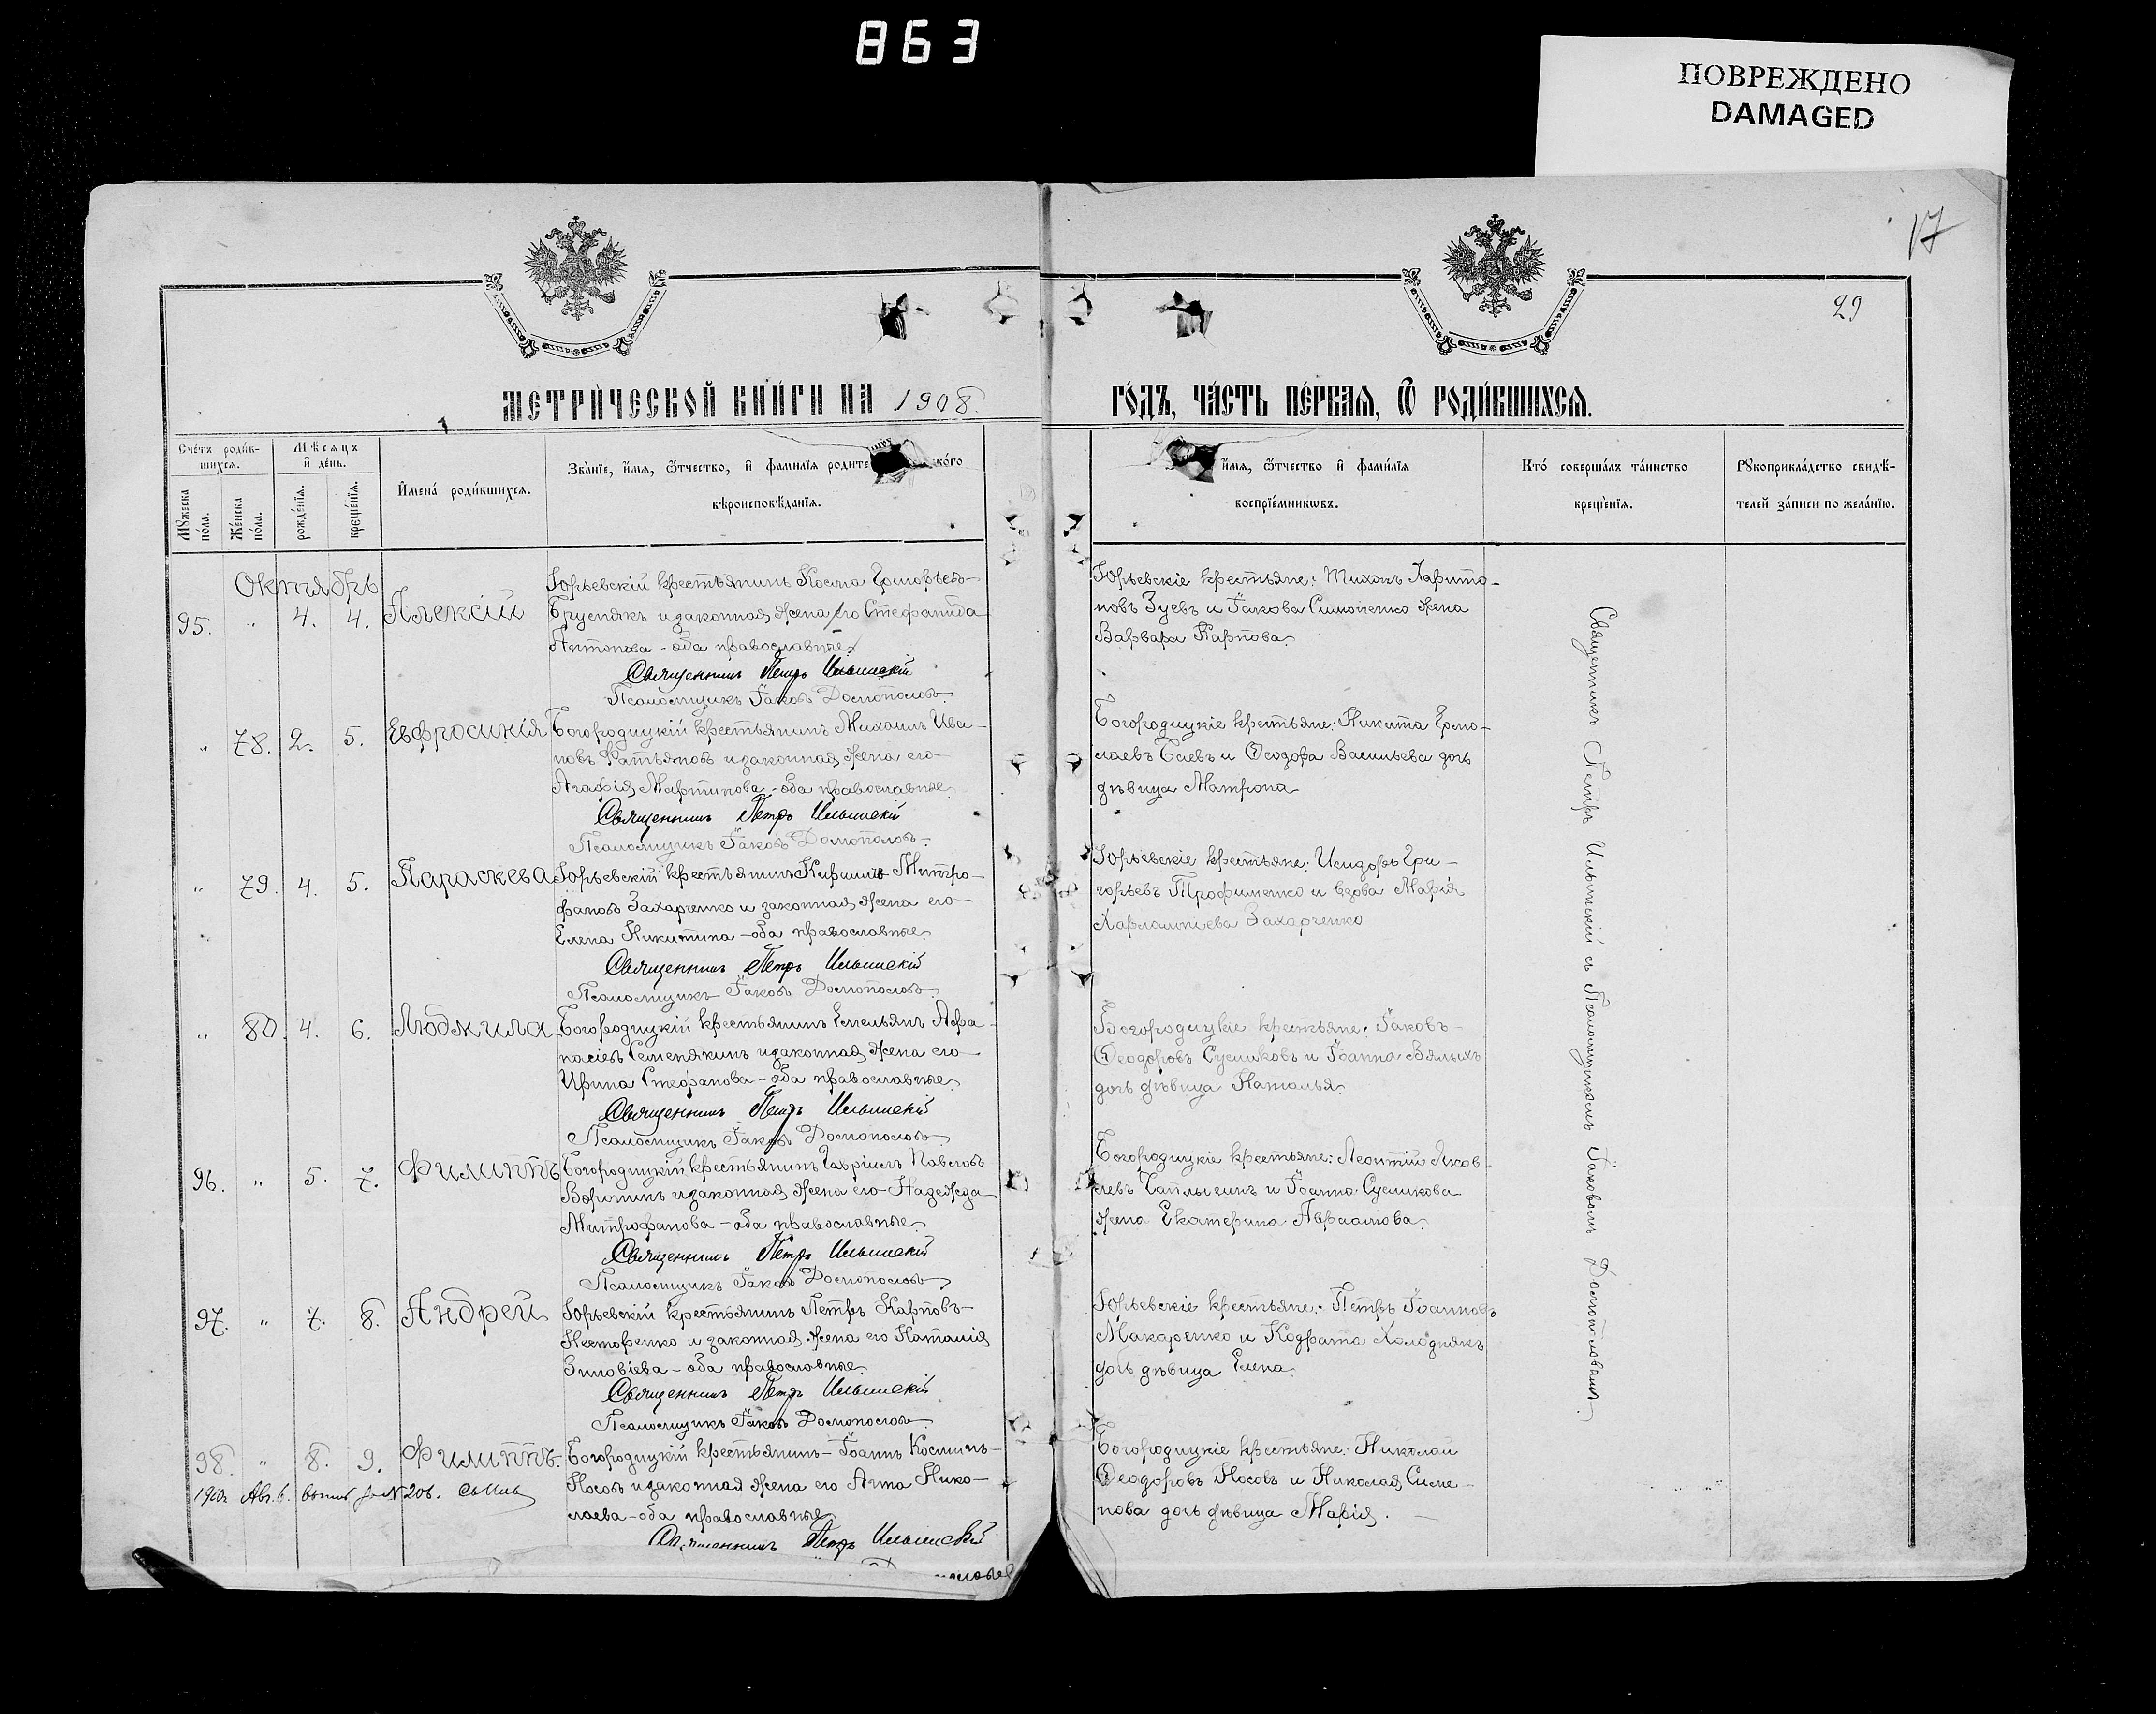 863
ПОВРЕЖДЕНО
DAMAGED
17
29
МЕТРИ́ЧЕСКОЙ КНИ́ГИ НА 1908 ГО́ДЪ, ЧА́СТЬ ПЕ́РВАЯ, Ѿ РОДИ́ВШИХСЯ.
Сче́тъ роди́в-
шихся.
Мѣсяцъ
и҆ де́нь.
Мꙋжеска
по́ла.
Же́нска
по́ла.
рожде́нїя.
креще́нїя.
И҆мена́ роди́вшихся.
Зва́нїе, и҆́мя, ѻ҆́тчество, и҆ фами́лїя родите
ко́го
вѣроисповѣ́данїя.
и҆́мя, ѻ҆́тчество и҆ фами́лїя
воспрїе́мникѡвъ.
Кто́ соверша́лъ та́инство
креще́нїя.
Рꙋкоприкла́дство свидѣ́-
телей за́писи по жела́нїю.
Октябрь
95. " 4. 4. Алексій
Юрьевскій крестьянинъ Косма
Бруснякъ и законная жена его Стефанида
Антонова - оба православные.
Священникъ Петръ Ильинскій
Псаломщикъ Іаковъ Домополовъ
Юрьевскіе крестьяне: Тихонъ Харито-
новъ Зуевъ и Іакова Симоненко жена
Варвара Карпова
" 78. 2. 5. Евфросинія
Богородицкій крестьянинъ Михаилъ Ива-
новъ Фатьяновъ и законная жена его
Агафія Мартинова - оба православные
Священникъ Петръ Ильинскій
Псаломщикъ Іаковъ Домополовъ
Богородицкіе крестьяне: Никита Ермо-
лаевъ Баевъ и Ѳеодора Васильева дочь
дѣвица Матрона
" 79. 4. 5. Параскева
Юрьевскій крестьянинъ Кириллъ Митро-
фановъ Захарченко и законная жена его
Елена Никитина - оба православные
Священникъ Петръ Ильинскій
Псаломщикъ Іаковъ Домополовъ
Юрьевскіе крестьяне: Исидоръ Гри-
горьевъ Трофименко и вдова Марія
Харлампіева Захарченко
" 80. 4. 6. Людмила
Богородицкій крестьянинъ Емельянъ Афа-
насіевъ Семенякинъ и законная жена его
Ирина Стефанова - оба православные
Священникъ Петръ Ильинскій
Псаломщикъ Іаковъ Домополовъ
Богородицкіе крестьяне: Іаковъ
Ѳеодоровъ Сусликовъ и Іоанна Вялыхъ
дочь дѣвица Наталья
96. " 5. 7. Филиппъ
Богородицкій крестьянинъ Гавріилъ Павловъ
Воронинъ и законная жена его Надежда
Митрофанова - оба православные
Священникъ Петръ Ильинскій
Псаломщикъ Іаковъ Домополовъ
Богородицкіе крестьяне: Леонтій Яков-
левъ Чаплыгинъ и Іоанна Сусликова
жена Екатерина Авраамова
97. " 7. 8. Андрей
Юрьевскій крестьянинъ Петръ Карповъ
Несторенко и законная жена его Наталія
Зиновіева - оба православные
Священникъ Петръ Ильинскій
Псаломщикъ Іаковъ Домополовъ
Юрьевскіе крестьяне: Петръ Іоанновъ
Макаренко и Кодрата Холоднякъ
дочь дѣвица Елена
98. " 8. 9. Филиппъ
Богородицкій крестьянинъ Іоаннъ Косминъ
Носовъ и законная жена его Анна Нико-
лаева - оба православные
Священникъ Петръ Ильинскій
Богородицкіе крестьяне: Николай
Ѳеодоровъ Носовъ и Николая Симе-
нова дочь дѣвица Марія.
Священникъ Петръ Ильинскій съ Псаломщикомъ Іаковомъ Домополовымъ